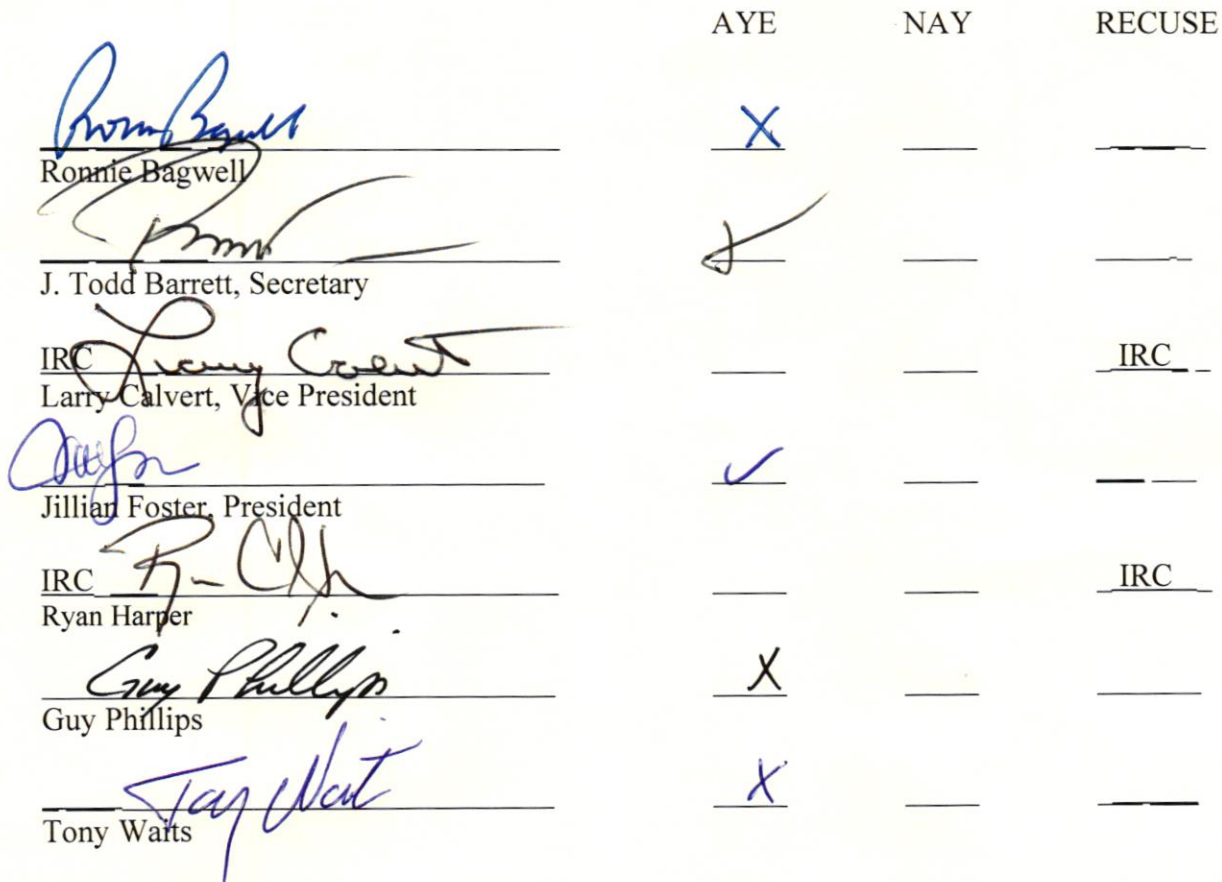 AYE NAY RECUSE
X
Ronnie Bagwell
J. Todd Barrett, Secretary
IRC Larry Calvert IRC
Larry Calvert, Vice President
✓
Jillian Foster, President
IRC IRC
Ryan Harper
Guy Phillips X
Guy Phillips
Tony Wait X
Tony Waits